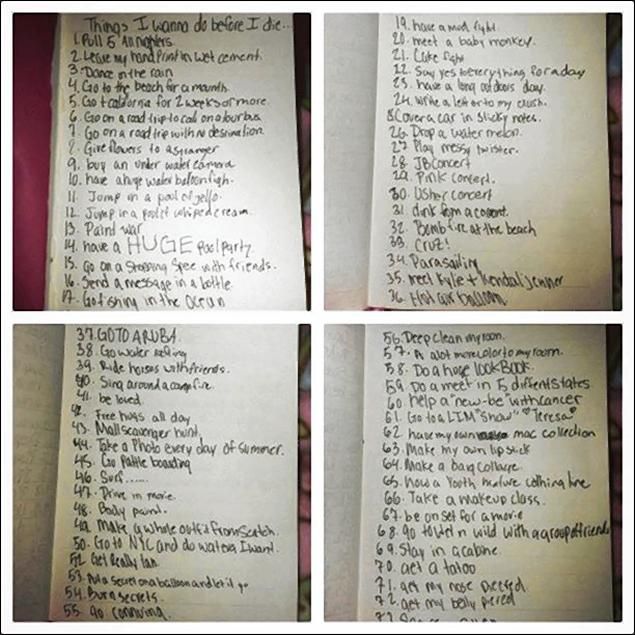 Things I wanna do before I die...
1. Pull 5 Allnighters.
2. Leave my handprint in wet cement.
3. Dance in the rain
4. Go to the beach for a mounth.
5. Go t california for 2 weeks or more.
6. Go on a road trip to cali on a tour bus
7. Go on a road trip with no destination.
8. Give flowers to a stranger
9. buy an under water camera
10. have a huge water baloon figh.
11. Jump in a pool of jello.
12. Jump in a pool of whiped cream.
13. Paint war
14. have a HUGE Pool party
15. Go on a Shopping Spee with friends.
16. Send a message in a bottle.
17. Go fishing in the Ocean
19. have a mud fight.
20. meet a baby monkey.
21. Cake fight
22. Say yes to everything for a day
23. have a long outdoors day.
24. Write a letter to my crush.
25. Cover a car in sticky notes.
26. Drop a water melon.
27. Play messy twister.
28. JB Concert
29. Pink concert.
30. Usher concert
31. dink from a coconut.
32. Bomb fire at the beach
33. Cruz!
34. Parasailing
35. meet Kylie + Kendal jenner
36. Hot air balloon
37. GO TO ARUBA.
38. Go water rafting
39. Ride horses with friends.
40. Sing around a campfire.
41. be loved.
42. Free hugs all day
43. Mall scavenger hunt.
44. Take a Photo every day of summer.
45. Go Pattle boarding
46. Surf......
47. Drive in movie.
48. Body paint.
49. Make a whole outfit from scatch.
50. Go to NYC and do watever I want.
52. Get Really tan.
53. Put a secret on a balloon and let it go
54. Burn secrets.
55. go connoing.
56. Deep clean my room.
57. A alot more color to my room.
58. Do a huge lookBook.
59. Do a meet in 5 diffent states.
60. help a "new-be" with cancer
61. Go to a LIM "show" "Teresa"
62. have my own mac collection
63. Make my own lip stick
64. Make a bag collage.
65. how a Youth mefure clothing line
66. Take a makeup class.
67. be on set for a movie
68. go to wet n wild with a group of friends
69. Stay in a cabine.
70. Get a tatoo
71. get my nose pierced.
72. get my belly piered